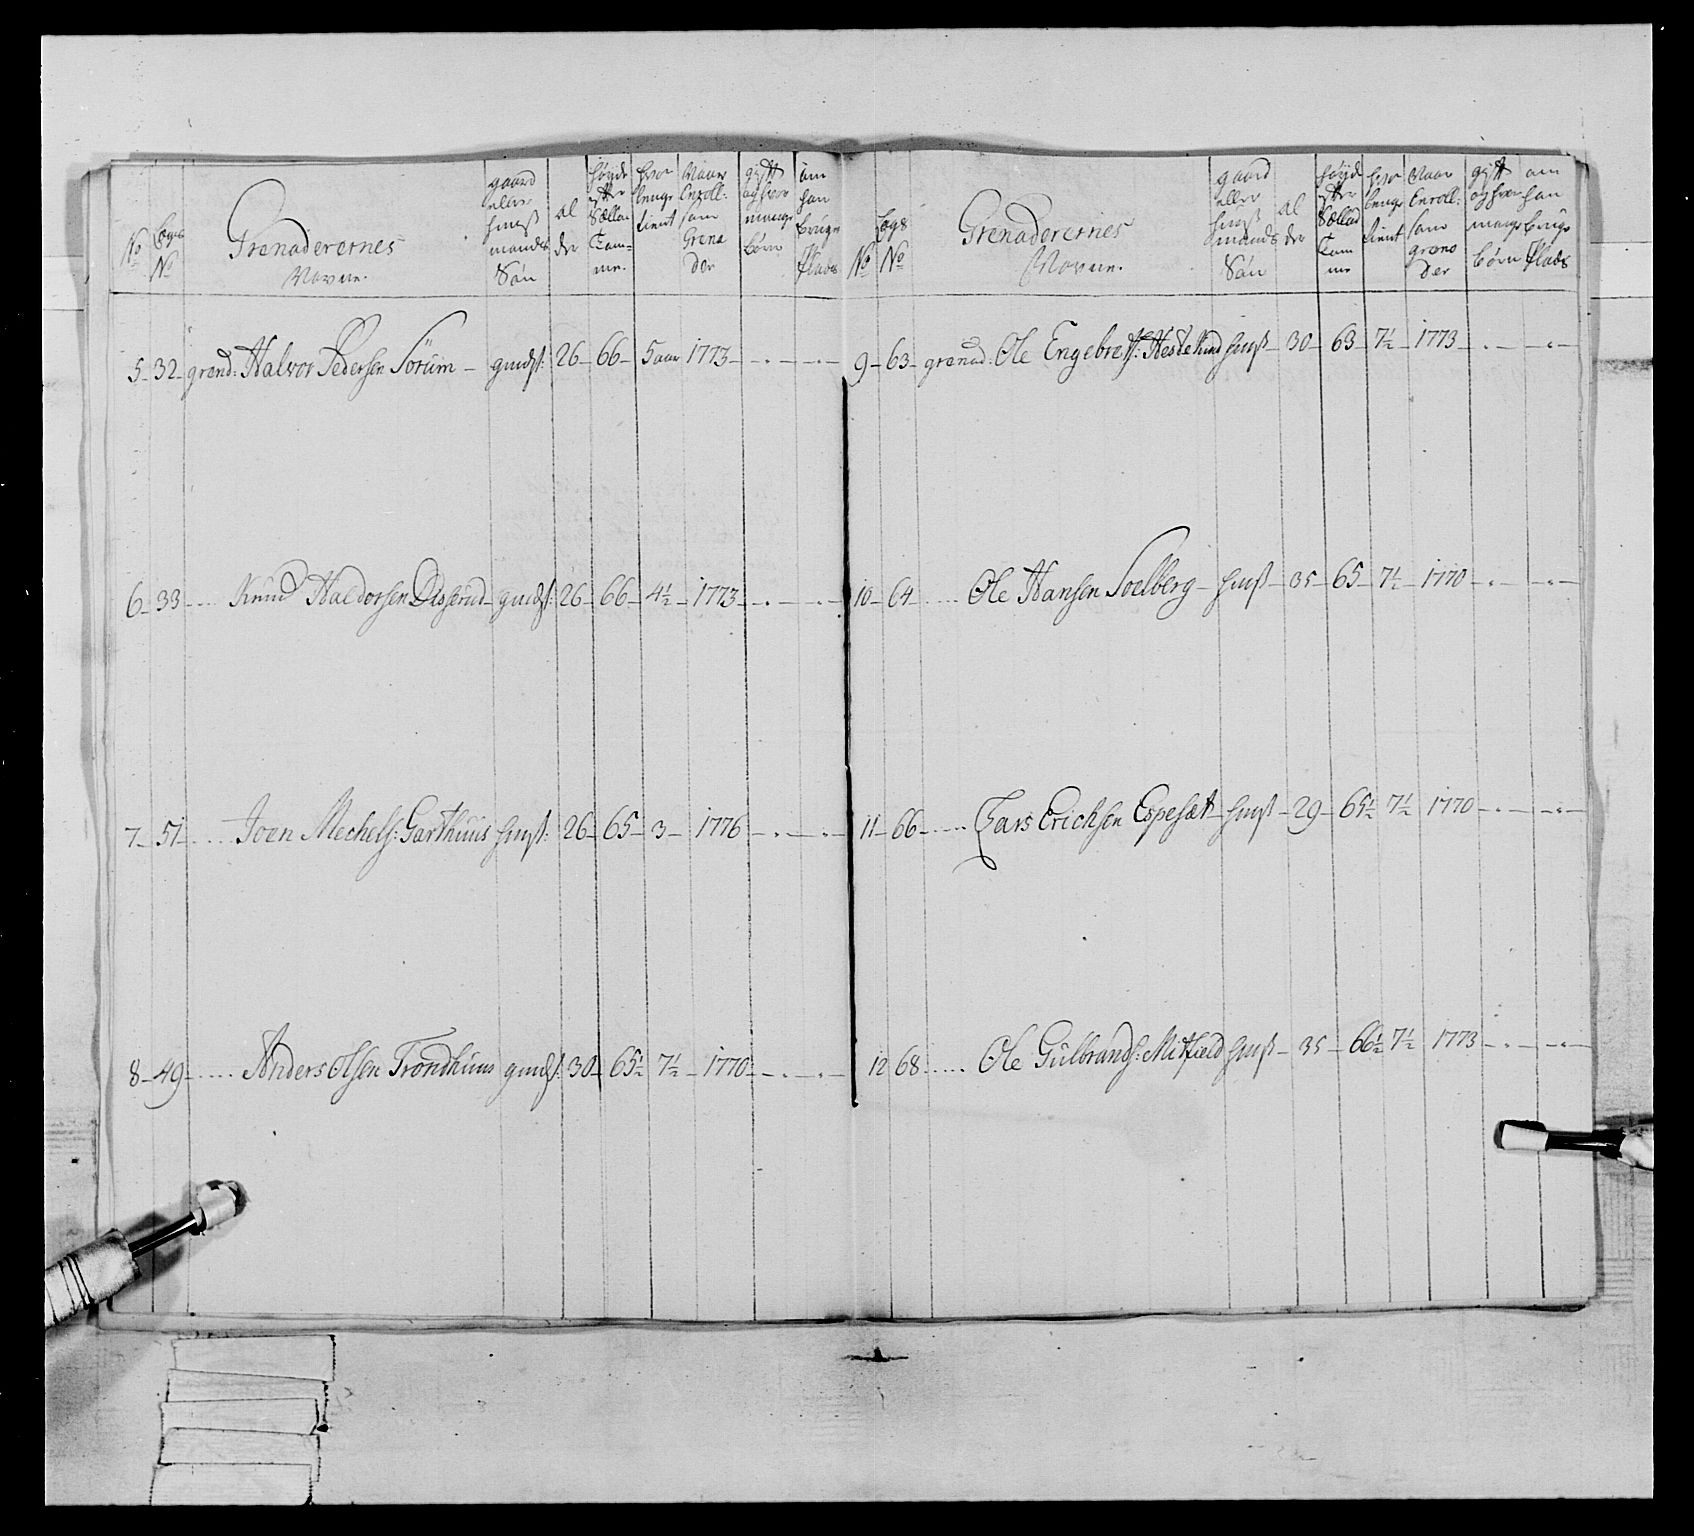 No
Lægs No
Grenaderernes Navne.
gaard eller huus mands Søn
al der
høyde efter Sællan Tom- me.
hvor lenge tient
Naar Enroll: som Grena der
gift og hvor mange børn
om han bruger Plads
5 - 32 - grend: Halvor Pedersen Sörum - gmds: 26 - 66 - 5 aar 1773 - - -
6 - 33 .... Knud Haldorsen - gmds: 26 - 66 - 4½ - 1773 - - -
7 - 51 .... Joen Mechels: Garthuus hmß: 26 - 65 - 3 - 1776 - - -
8 - 49 .... Anders Olsen Trondhuus gmds: 30 65½ 7½ - 1770 - - -
No
Lægs No
Grenaderernes Navne.
gaard eller huus mands Søn
al der
høyde efter Sælland Tom me
hvor lenge tient
Naar Enroll: som grena der
gift og hvor mange børn
om han bruge Plads
9 - 63 - grenad: Ole Engebretß: Hestelund hmß - 30 - 63 - 7½ - 1773 - - -
10 - 64 .... Ole Hansen Soelberg - hmß - 35 - 65 - 7½ - 1770 - - -
11 - 66 .... Lars Erichsen Espesæt hmß - 29 - 65½ 7½ - 1770 - - -
12 68 .... Ole Gulbrands: Mitfield hmß - 35 - 66½ 7½ - 1773 - - -